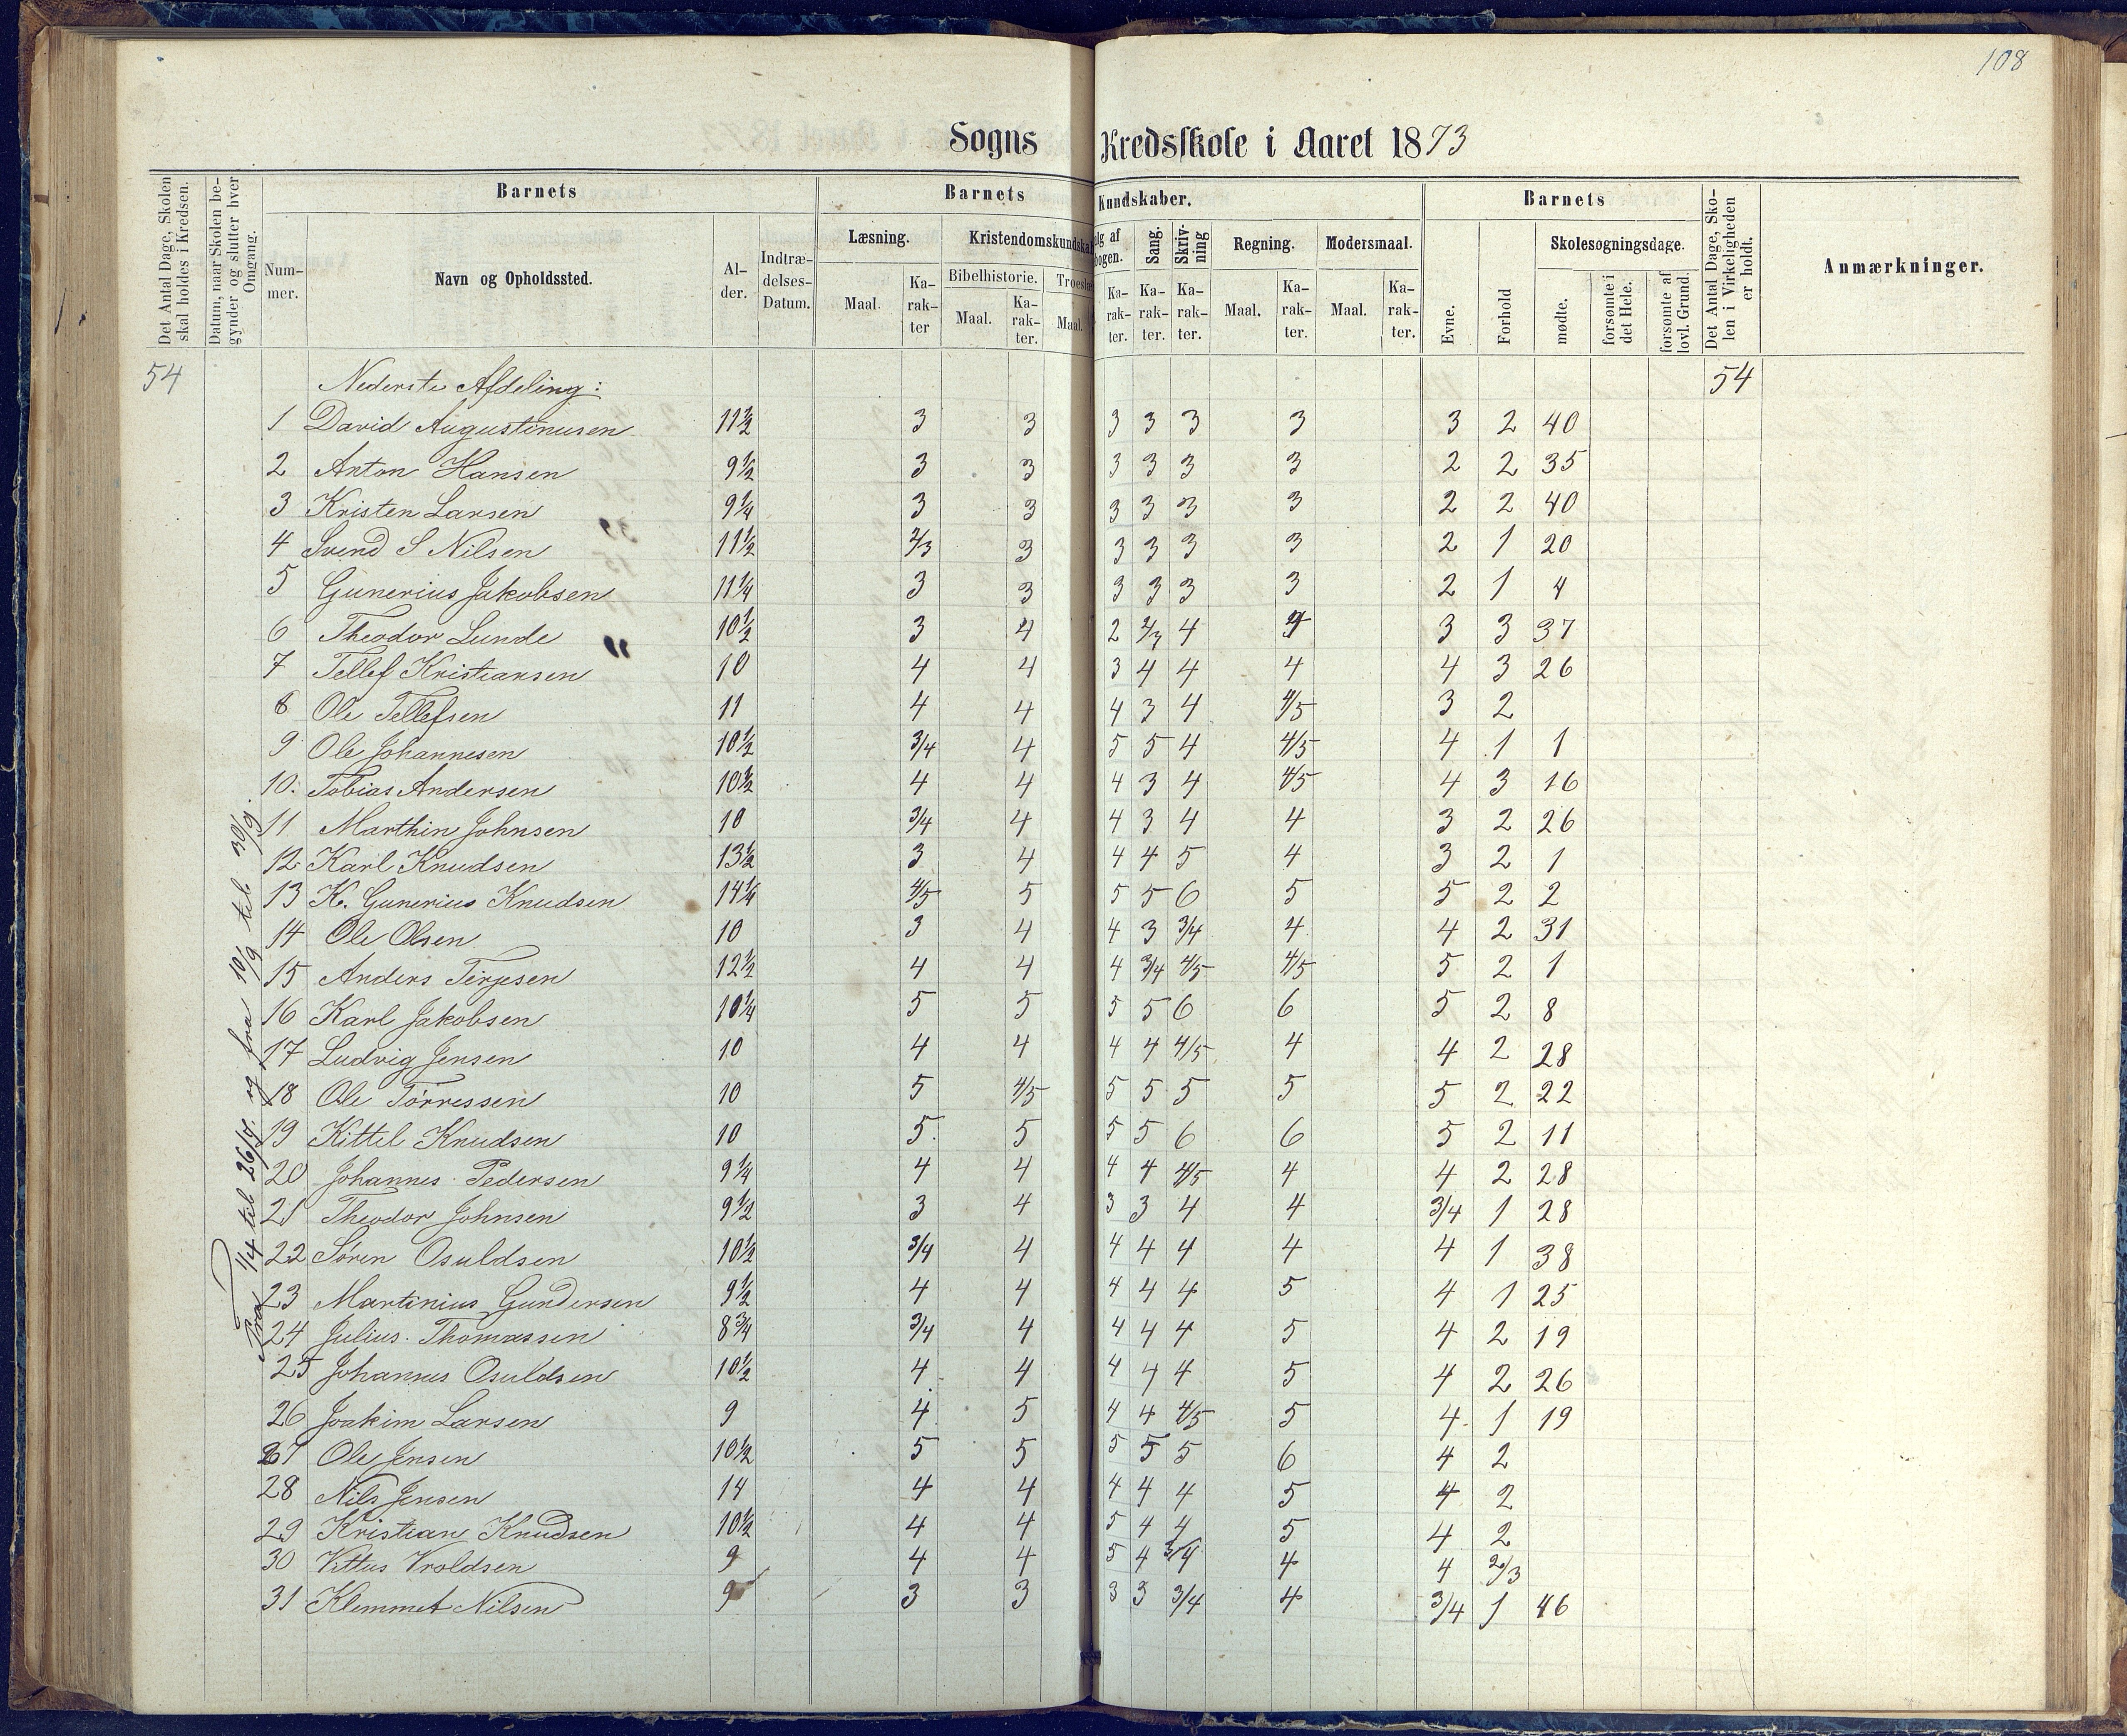 108
Sogns Kredsskole i Aaret 1873
Det Antal Dage, Skolen skal holdes i Kredsen.
Datum, naar Skolen begynder og slutter hver Omgang.
Barnets
Nummer.
Navn og Opholdssted.
Alder.
Indtrædelses-Datum.
Barnets Kundskaber.
Læsning.
Maal.
Karakter
Kristendomskundska
Bibelhistorie.
Maal.
Karakter.
Troeslæ
Maal.
alg af
bogen.
Karakter.
Sang.
Karakter.
Skrivning
Karakter.
Regning.
Maal.
Karakter.
Modersmaal.
Maal.
Karakter.
Barnets
Evne.
Forhold
Skolesøgningsdage.
mødte.
forsømte i det Hele.
forsømte af lovl. Grund.
Det Antal Dage, Skolen i Virkeligheden er holdt.
Anmærkninger.
54 Nederste Afdeling: 54
Fra 1/4 til 26/7. og fra 10/9 til 30/9.
1 David Augustinusen 11½ 3 3 3 3 3 3 3 2 40
2 Anton Hansen 9½ 3 3 3 3 3 3 2 2 35
3 Kristen Larsen 9¼ 3 3 3 3 3 3 2 2 40
4 Svend S Nilsen 11½ 2/3 3 3 3 3 3 2 1 20
5 Gunerius Jakobsen 11¼ 3 3 3 3 3 3 2 1 4
6 Theodor Lunde 10½ 3 4 2 2/3 4 3 3 37
7 Tellef Kristiansen 10 4 4 3 4 4 4 4 3 26
8 Ole Tellefsen 11 4 4 4 3 4 4/5 3 2
9 Ole Johannesen 10½ 3/4 4 5 5 4 4/5 4 1 1
10. Tobias Andersen 10½ 4 4 4 3 4 4/5 4 3 16
11 Marthin Johnsen 10 3/4 4 4 3 4 4 3 2 26
12 Karl Knudsen 13½ 3 4 4 4 5 4 3 2 1
13 K. Gunerius Knudsen 14¼ 4/5 5 5 5 6 5 5 2 2
14 Ole Olsen 10 3 4 4 3 3/4 4 4 2 31
15 Anders Terjesen 12½ 4 4 4 3/4 4/5 4/5 5 2 1
16 Karl Jakobsen 10¼ 5 5 5 5 6 6 5 2 8
17 Ludvig Jensen 10 4 4 4 4 4/5 4 4 2 28
18 Ole Torressen 10 5 4/5 5 5 5 5 5 2 22
19 Kittel Knudsen 10 5 5 5 5 6 6 5 2 11
20 Johannes Pedersen 9¼ 4 4 4 4 4/5 4 4 2 28
21 Theodor Johnsen 9½ 3 4 3 3 4 4 3/4 1 28
22 Søren Osuldsen 10½ 3/4 4 4 4 4 4 4 1 38
23 Martinius Gundersen 9½ 4 4 4 4 4 5 4 1 25
24 Julius Thomassen 8¾ 3/4 4 4 4 4 5 4 2 19
25 Johannes Osuldsen 10½ 4 4 4 4 4 5 4 2 26
26 Joakim Larsen 9 4 5 4 4 4/5 5 4 1 19
27 Ole Jensen 10½ 5 5 5 5 5 6 4 2
28 Nils Jensen 14 4 4 4 4 4 5 4 2
29 Kristian Knudsen 10½ 4 4 5 4 4 5 4 2
30 Vittus Vroldsen 9 4 4 5 4 3/4 4 4 2/3
31 Klemmet Nilsen 9 3 3 3 3 3/4 4 3/4 1 46